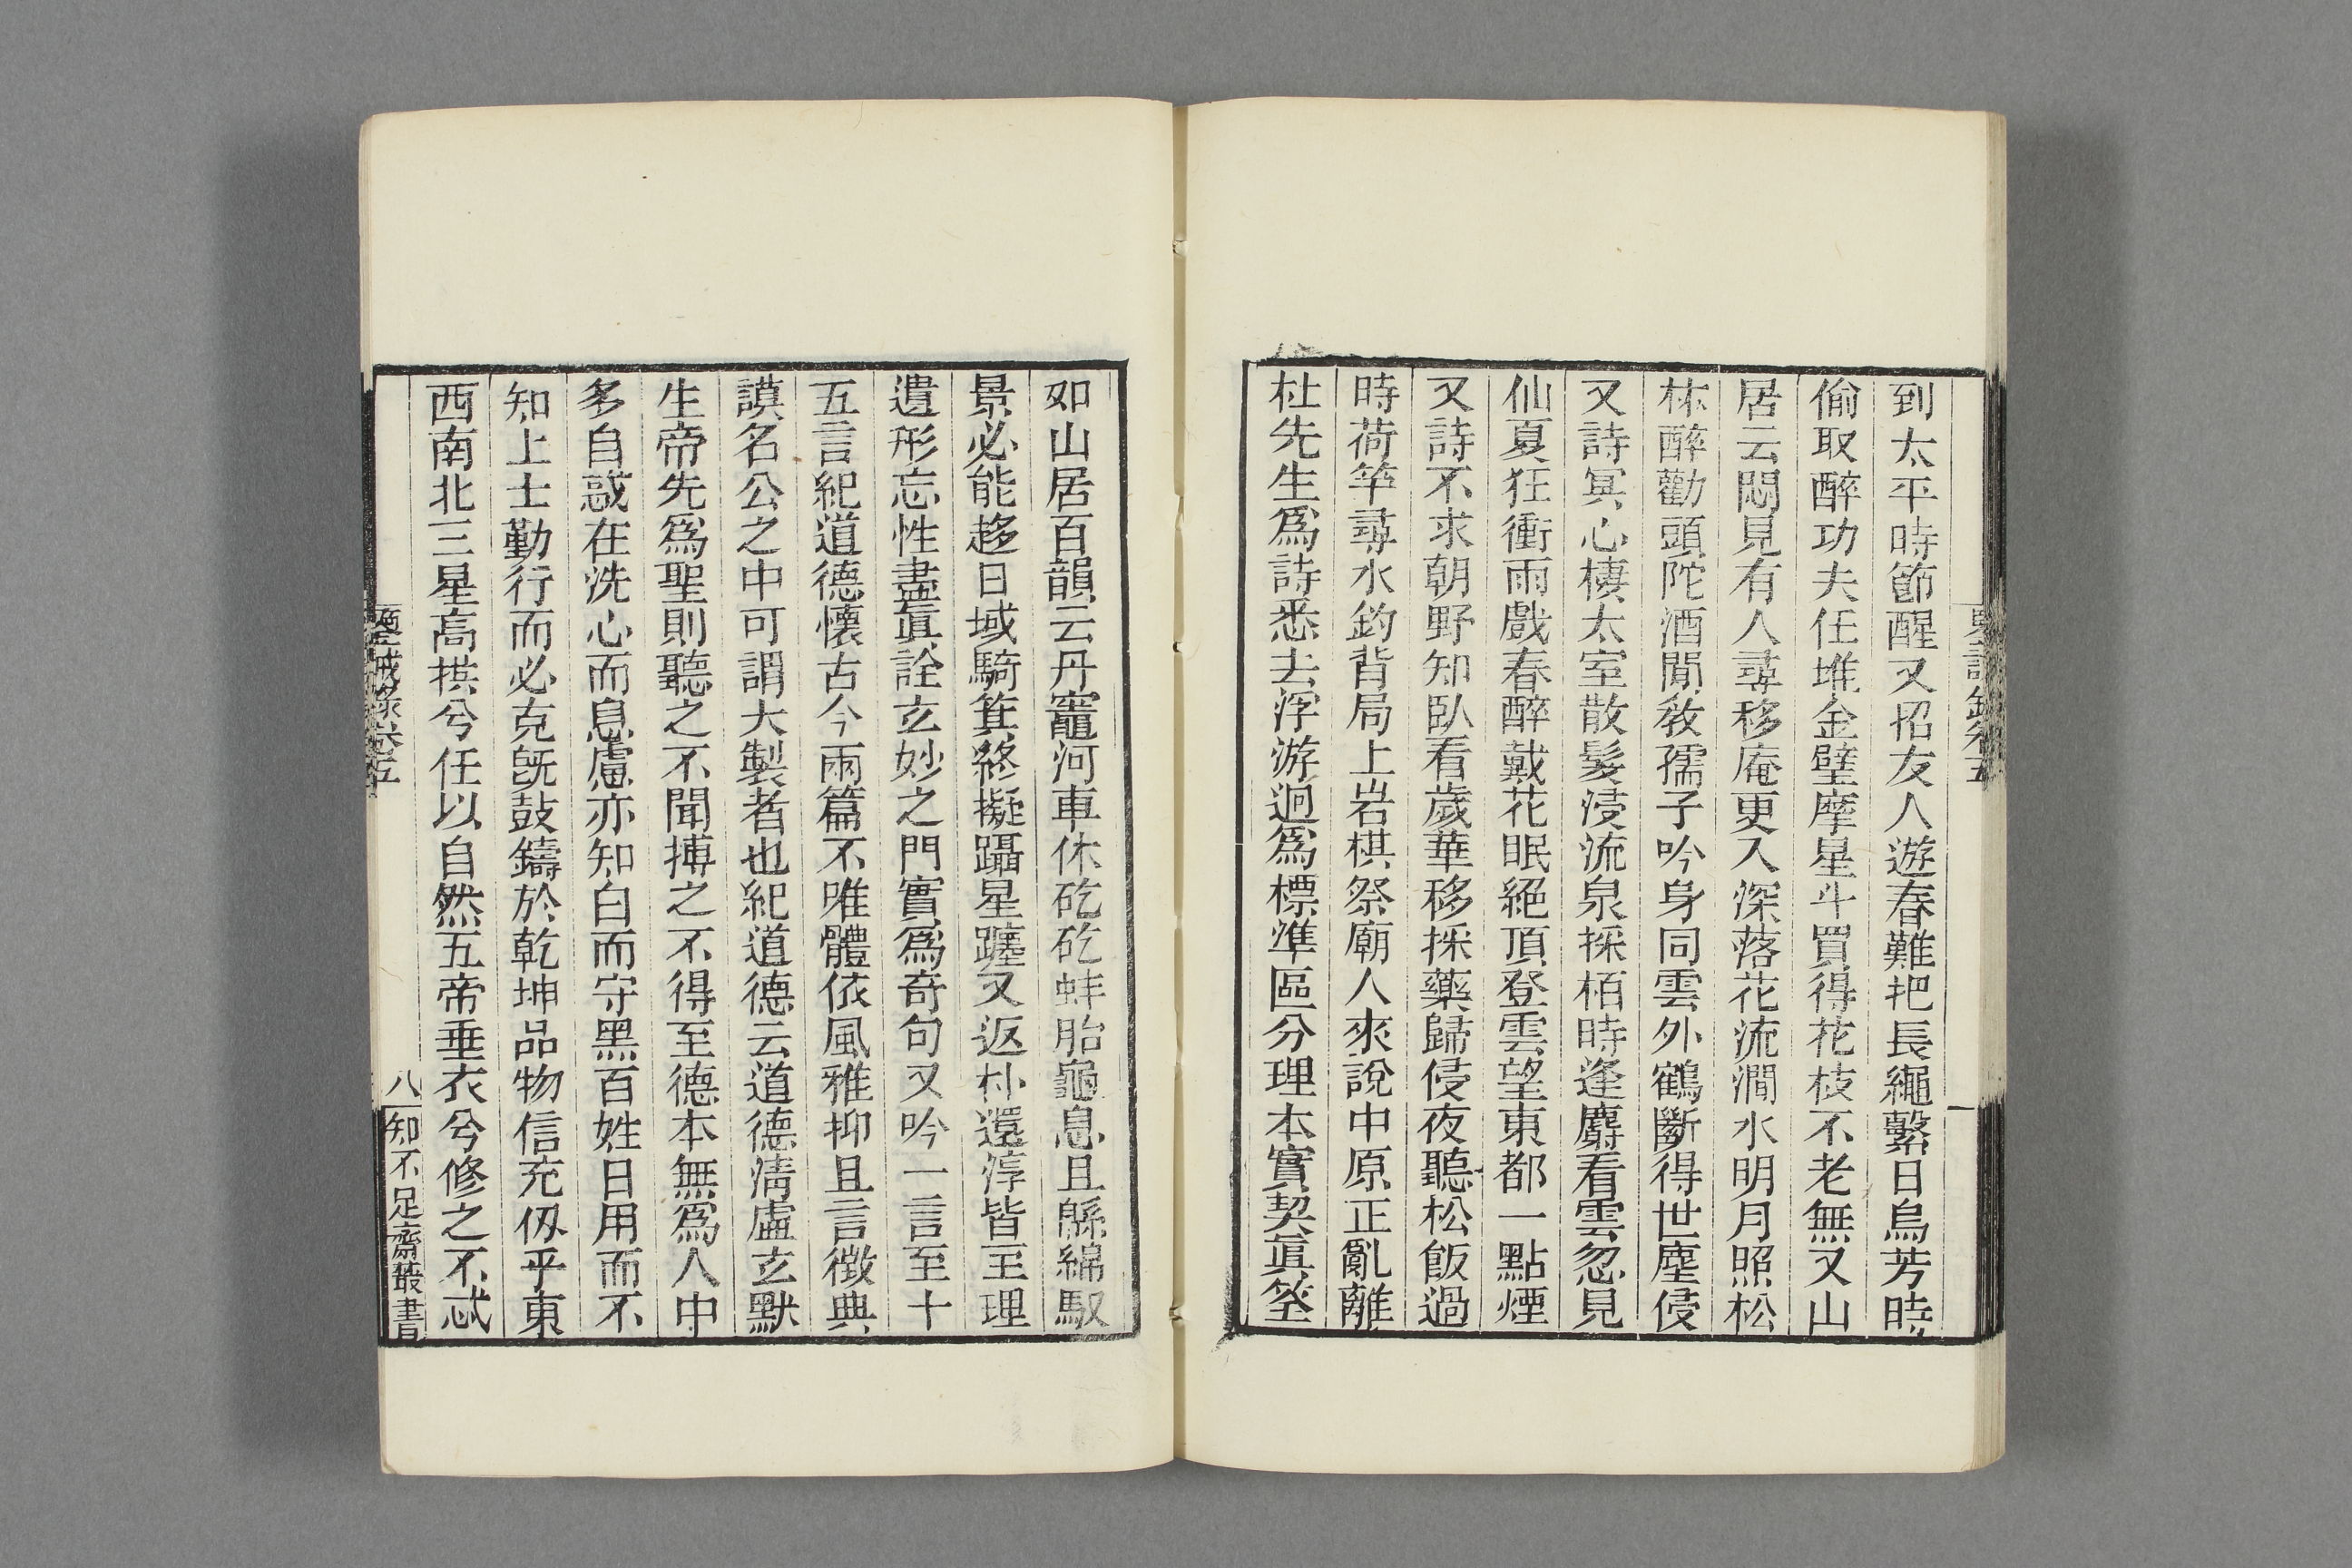 到太平時節醒又招友人遊春難把長繩繫日烏芳時
偷取醉功夫任堆金璧摩星斗買得花枝不老無又山
居云悶見有人尋移庵更入深落花流澗水明月照松
林醉勸頭陀酒閒敎孺子吟身同雲外鶴斷得世塵侵
又詩冥心棲太室散髮浸流泉採栢時逢麝看雲忽見
仙夏狂衝雨戲春醉戴花眠絕頂登雲望東都一點煙
又詩不求朝野知臥看歲華移採藥歸侵夜聽松飯過
時荷竿尋水釣背局上岩棋祭廟人來說中原正亂離
杜先生爲詩悉去浮游迥爲標準區分理本實契眞筌
如山居百韻云丹竈河車休矻矻蚌胎龜息且緜綿馭
景必能趍日域騎箕終擬躡星躔又返朴還淳皆至理
遺形忘性盡眞詮玄妙之門實爲奇句又吟一言至十
五言紀道德懷古今兩篇不唯體依風雅抑且言徵典
謨名公之中可謂大製者也紀道德云道德淸虛玄默
生帝先爲聖則聽之不聞搏之不得至德本無爲人中
多自惑在洗心而息慮亦知白而守黑百姓日用而不
知上士勤行而必克旣鼓鑄於乾坤品物信充仭乎東
西南北三星高拱兮任以自然五帝垂衣兮修之不忒
鑒誡錄卷五
八
知不足齋叢書